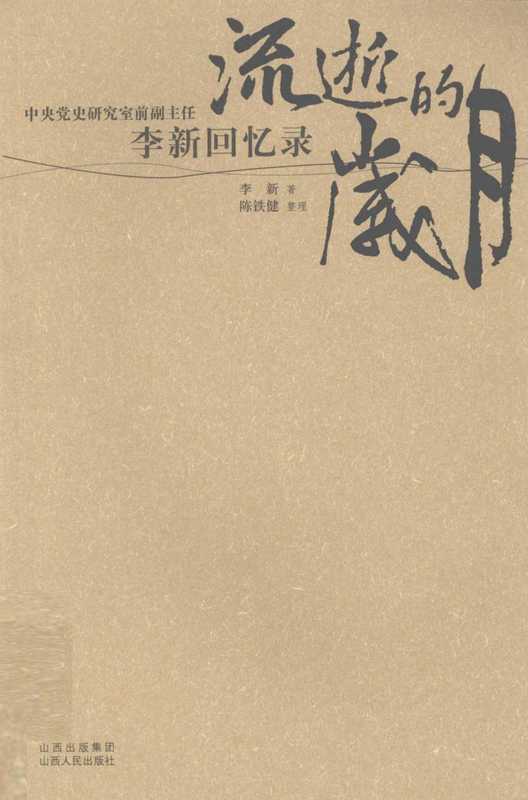 流逝的
歲月
中央党史研究室前副主任
李新回忆录
李 新 著
陈铁健 整理
山西出版集团
山西人民出版社